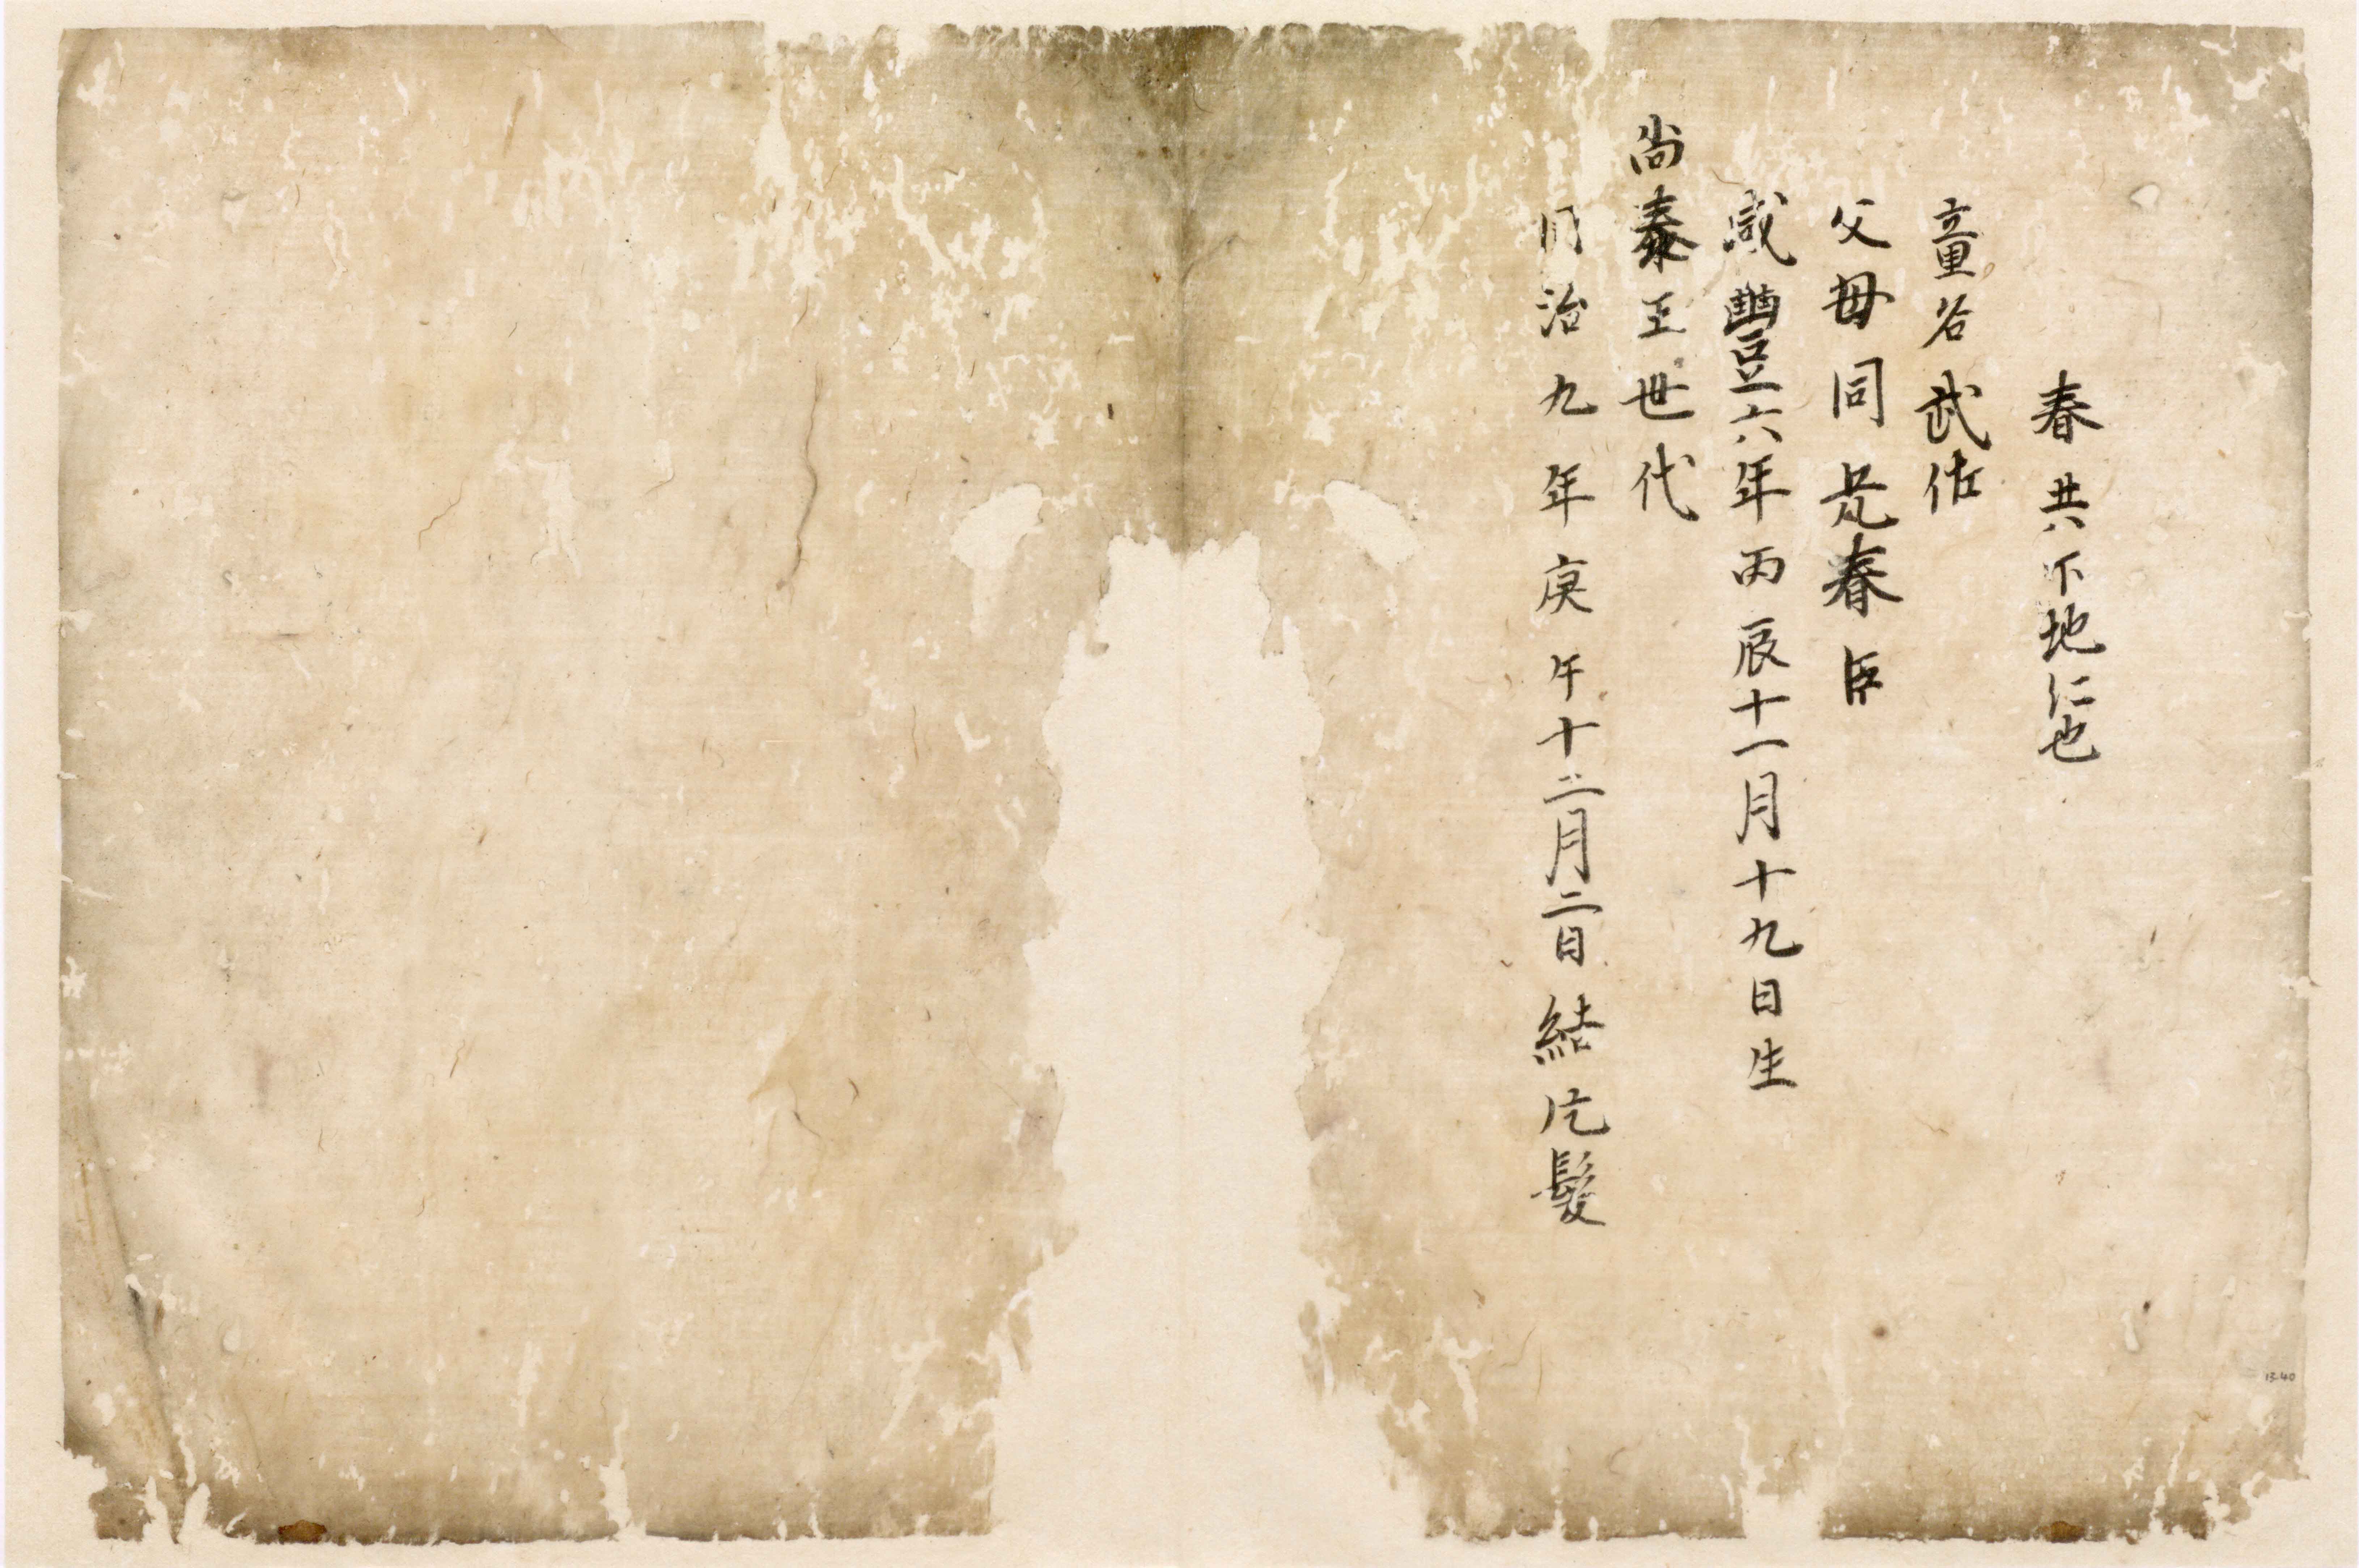 春共下地仁也
童名武佐
父母同兄春臣
咸豐六年丙辰十一月十九日生
尚泰王世代
同治九年庚午十二月二日結片髮
13-40